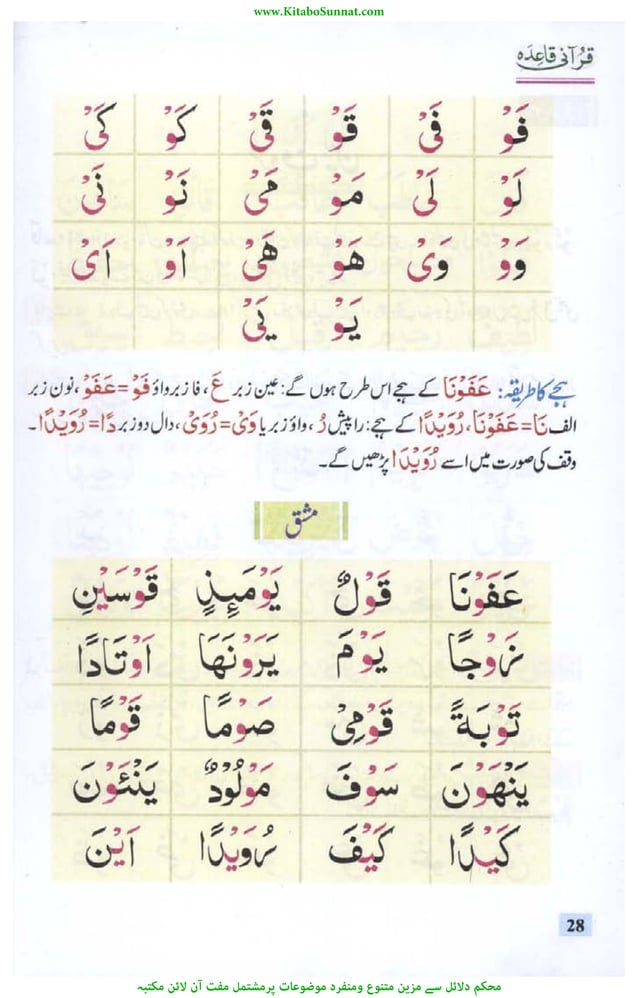 www.KitaboSunnat.com
قرآنی قاعدہ
فَوْ فَیْ قَوْ قَیْ کَوْ کَیْ
لَوْ لَیْ مَوْ مَیْ نَوْ نَیْ
وَوْ وَیْ هَوْ هَیْ اَوْ اَیْ
یَوْ یَیْ
ہجے کا طریقہ: عَفَوْنَا کے ہجے اس طرح ہوں گے: عین زبر عَ ، فا زبر واؤ فَوْ = عَفَوْ ، نون زبر
الف نَا = عَفَوْنَا، رُوَیْدًا کے ہجے: را پیش رُ ، واؤ زبر یا وَیْ = رُوَیْ ، دال دو زبر دًا = رُوَیْدًا ۔
وقف کی صورت میں اسے رُوَیْدَا پڑھیں گے۔
مشق
عَفَوْنَا قَوْلٌ یَوْمَئِذٍ قَوْسَیْنِ
زَوْجًا یَوْمَ یَرَوْنَهَا اَوْتَادًا
تَوْبَةً قَوْمِیْ صَوْمًا قَوْمًا
یَنْهَوْنَ سَوْفَ مَوْلُوْدٌ یَنْئَوْنَ
کَیْدًا کَیْفَ رُوَیْدًا اَیْنَ
28
محکم دلائل سے مزین متنوع ومنفرد موضوعات پر مشتمل مفت آن لائن مکتبہ